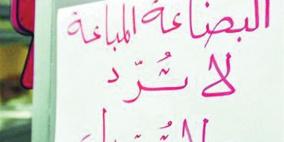 البضاعة المباعة
لا تُردّ